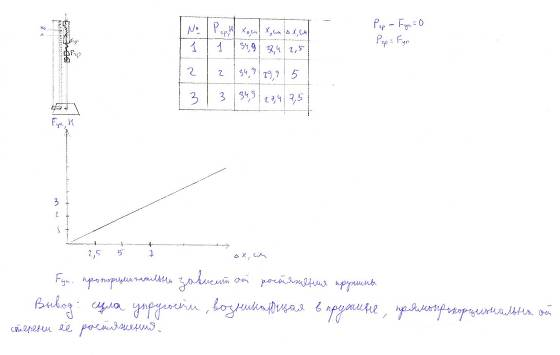 № Pгр, Н x₀, см x, см Δx, см
1 1 34,9 32,4 2,5
2 2 34,9 29,9 5
3 3 34,9 27,4 7,5
Pгр - Fуп = 0
Pгр = Fуп
Fуп, Н
3
2
1
2,5 5 7 Δx, см
Fуп. пропорционально зависит от растяжения пружины
Вывод: сила упругости, возникающая в пружине, прямопропорциональна от
степени её растяжения.